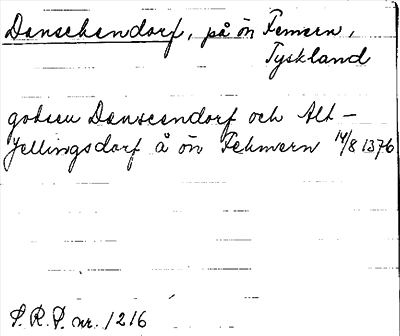 Danschendorf, på ön Femern,
Tyskland
godsen Danscendorf och Alt-
Jellingsdorf å ön Fehmern 14/8 1376
S.R.P. nr. 1216